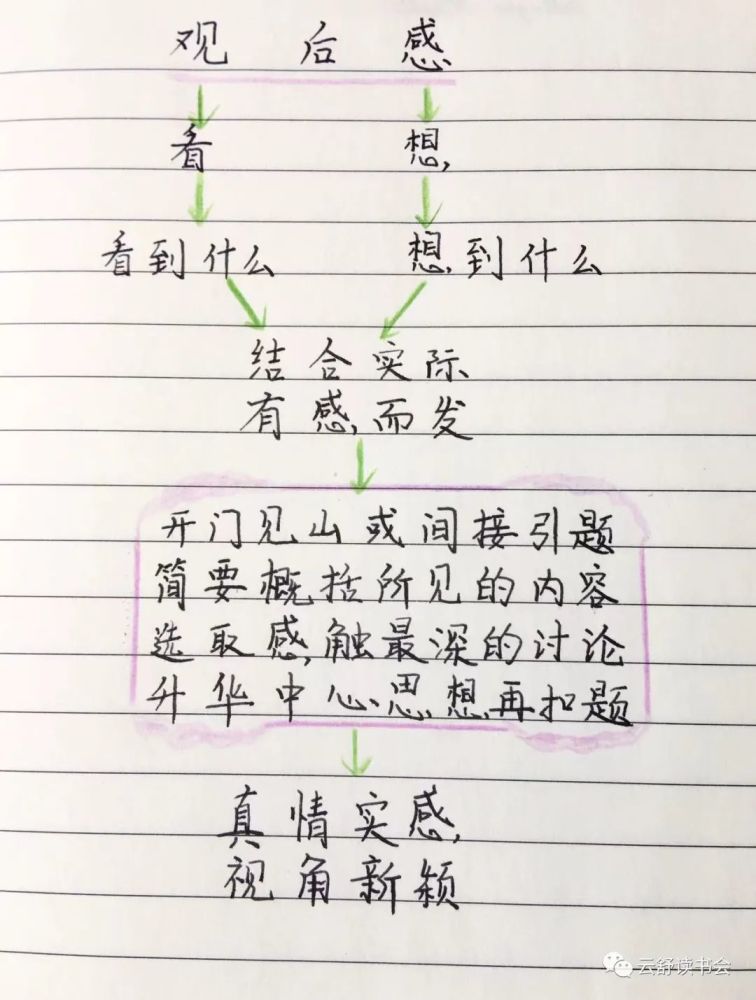 观后感
看 想
看到什么 想到什么
结合实际
有感而发
开门见山或间接引题
简要概括所见的内容
选取感触最深的讨论
升华中心思想再扣题
真情实感
视角新颖
云舒读书会